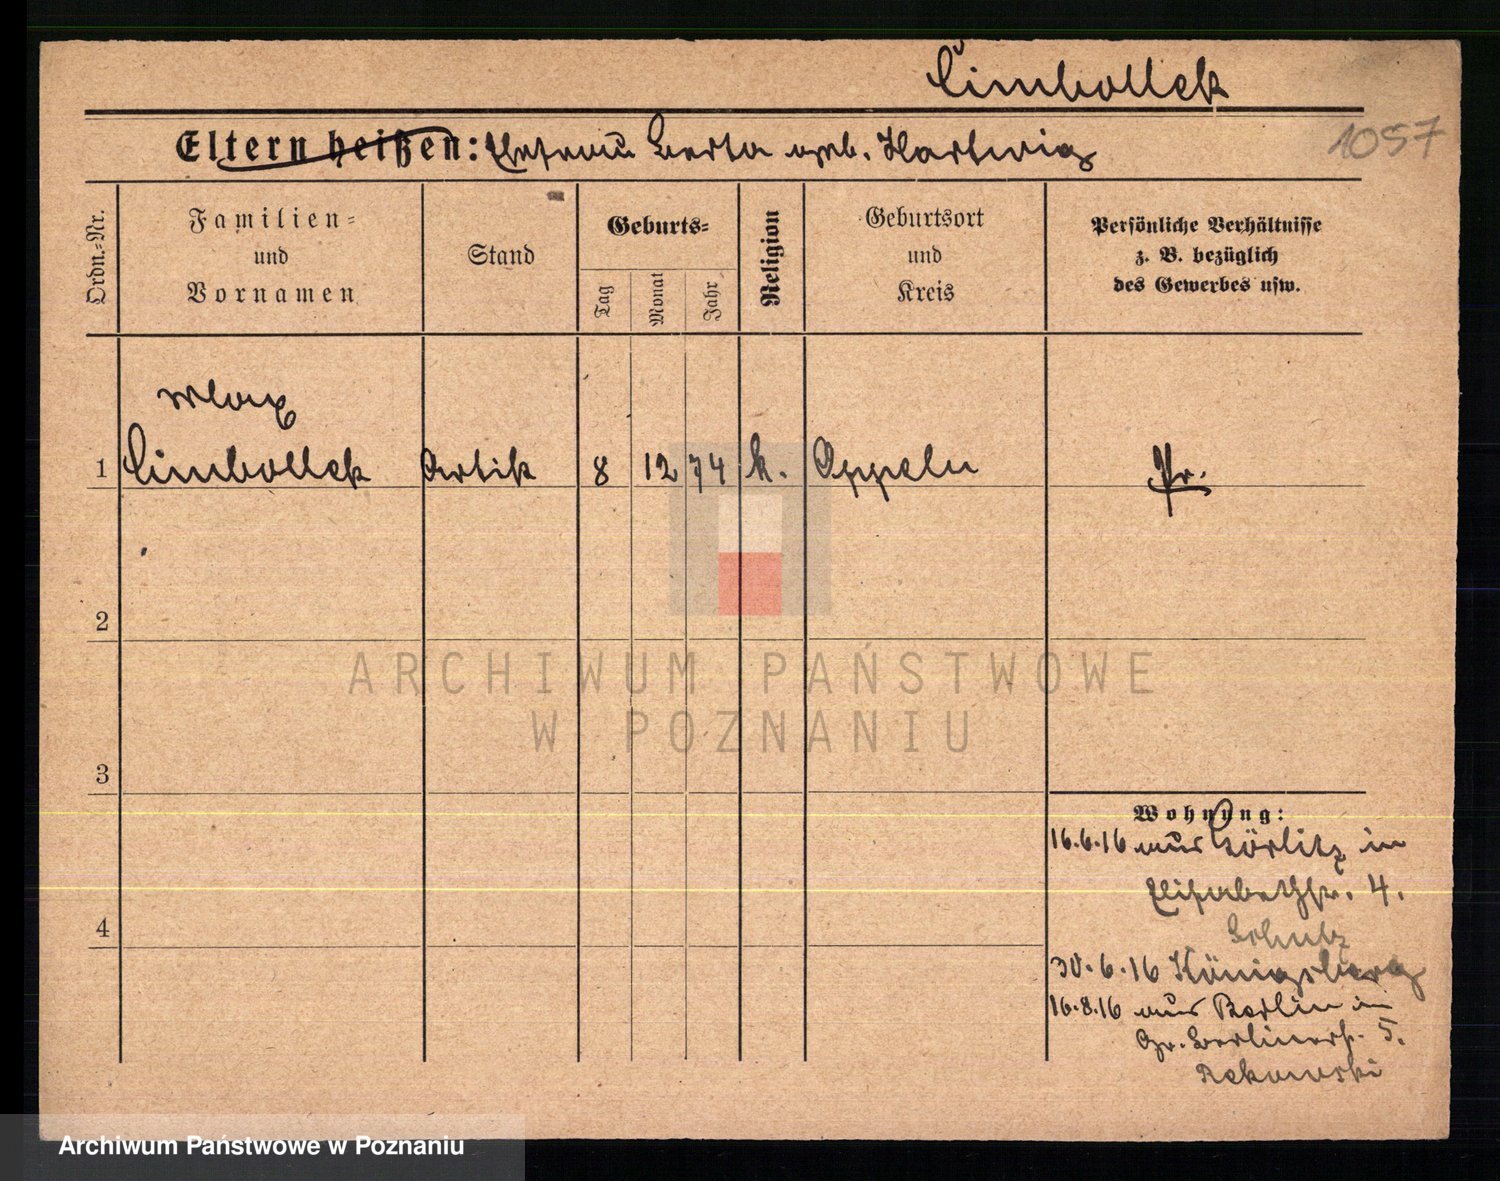 Cimbollek
1057
Eltern heißen: Ehefrau Berta geb. Hartwig
Ordn.=Nr.
Familien=
und
Vornamen
Stand
Geburts=
Tag
Monat
Jahr
Religion
Geburtsort
und
Kreis
Persönliche Verhältnisse
z. B. bezüglich
des Gewerbes usw.
Max
1 Cimbollek Artist 8 12 74 k. Oppeln Pr.
2
3
4
Wohnung:
16.6.16 aus Görlitz in
Elisabethstr. 4.
Schulz
30.6.16 Königsberg
16.8.16 aus Berlin in
Gr. Berlinerstr. 5.
Rekowski
ARCHIWUM PAŃSTWOWE
W POZNANIU
Archiwum Państwowe w Poznaniu